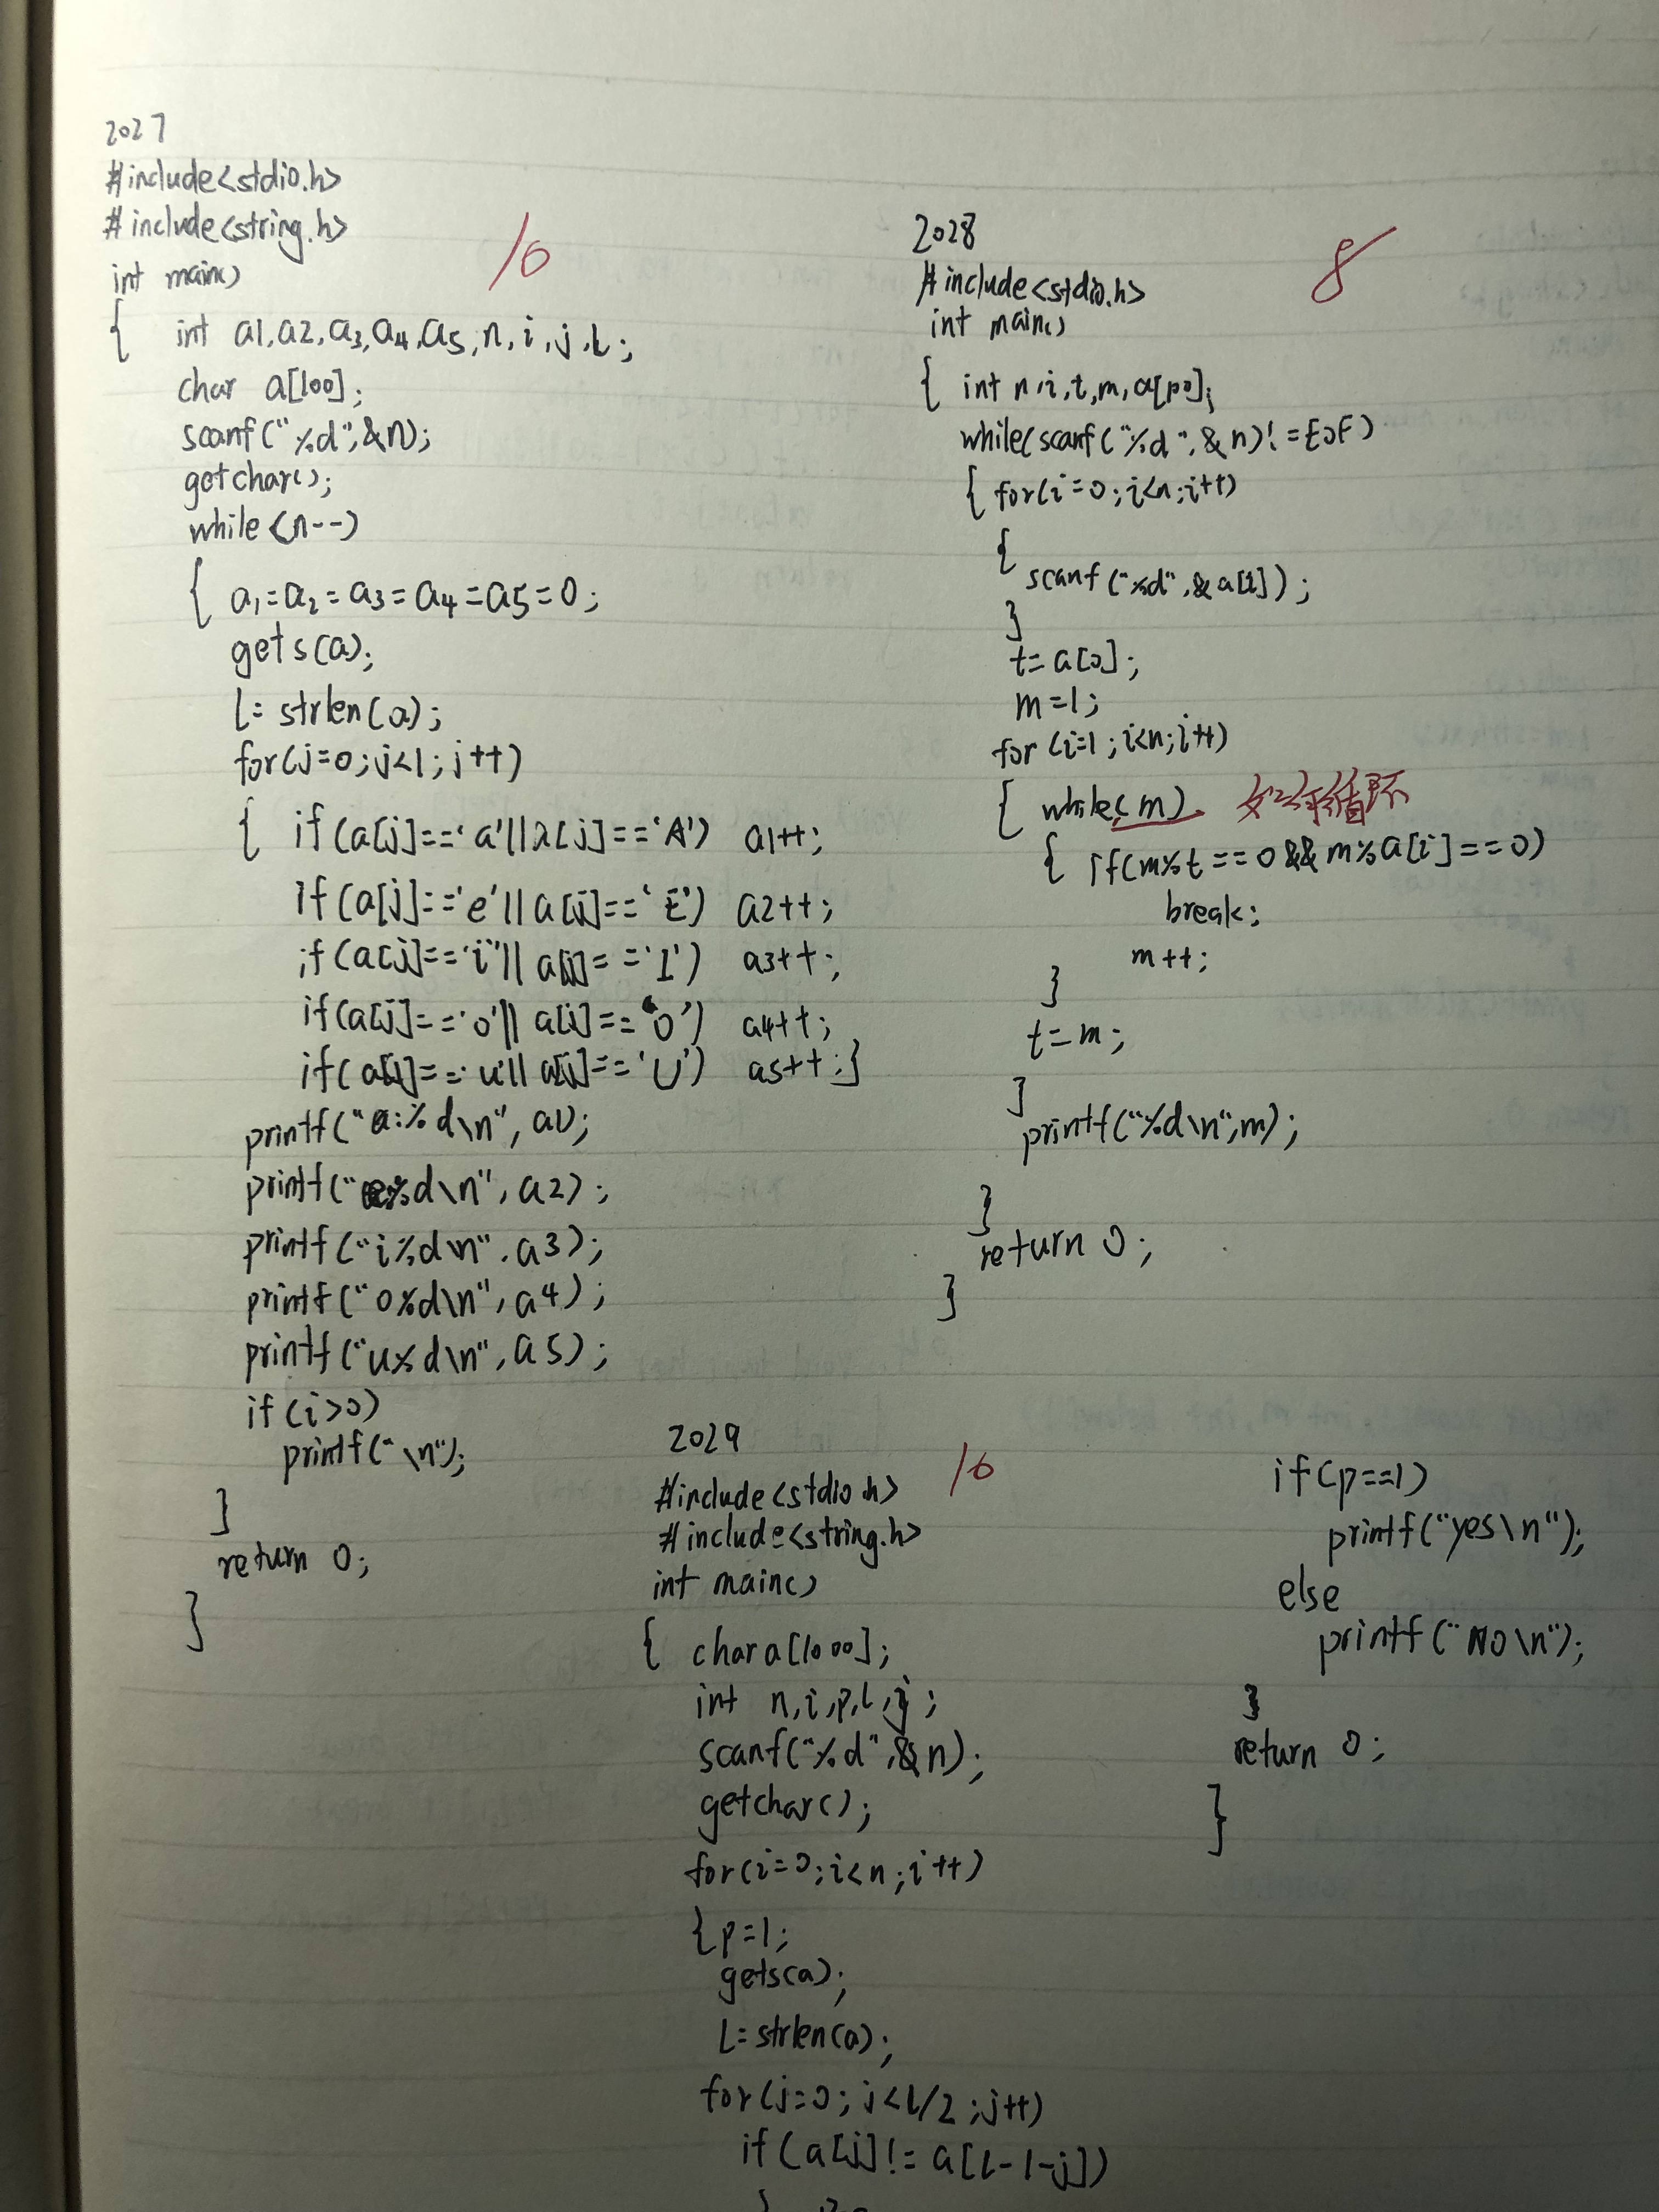 2027
#include<stdio.h>
#include<string.h>
int main()
{ int a1,a2,a3,a4,a5,n,i,j,l;
char a[100];
scanf("%d",&n);
getchar();
while(n--)
{ a1=a2=a3=a4=a5=0;
gets(a);
l=strlen(a);
for(j=0;j<l;j++)
{ if(a[j]=='a'||a[j]=='A') a1++;
if(a[j]=='e'||a[j]=='E') a2++;
if(a[j]=='i'||a[j]=='I') a3++;
if(a[j]=='o'||a[j]=='O') a4++;
if(a[j]=='u'||a[j]=='U') a5++;}
printf("a:%d\n",a1);
printf("e%d\n",a2);
printf("i%d\n",a3);
printf("o%d\n",a4);
printf("u%d\n",a5);
if(i>0)
printf("\n");
}
return 0;
}
10
2028
#include<stdio.h>
int main()
{ int n,i,t,m,a[100];
while(scanf("%d",&n)!=EOF)
{ for(i=0;i<n;i++)
{
scanf("%d",&a[i]);
}
t=a[0];
m=1;
for(i=1;i<n;i++)
{ while(m)
{ if(m%t==0&&m%a[i]==0)
break;
m++;
}
t=m;
}
printf("%d\n",m);
}
return 0;
}
8
2029
#include<stdio.h>
#include<string.h>
int main()
{ char a[1000];
int n,i,p,l,j;
scanf("%d",&n);
getchar();
for(i=0;i<n;i++)
{p=1;
gets(a);
l=strlen(a);
for(j=0;j<l/2;j++)
if(a[j]!=a[l-1-j])
{
10
if(p==1)
printf("yes\n");
else
printf("no\n");
}
return 0;
}